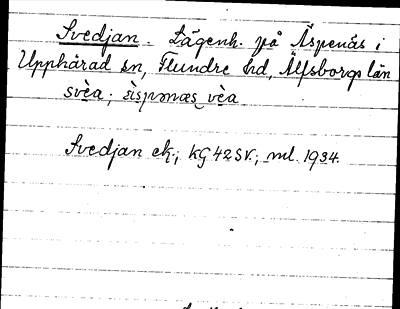 Svedjan. Lägenh. på Äspenäs i
Upphärad sn, Flundre hd, Älfsborgs län
svèa, 
Svedjan ek.; KG 42 SV.; ml. 1934.